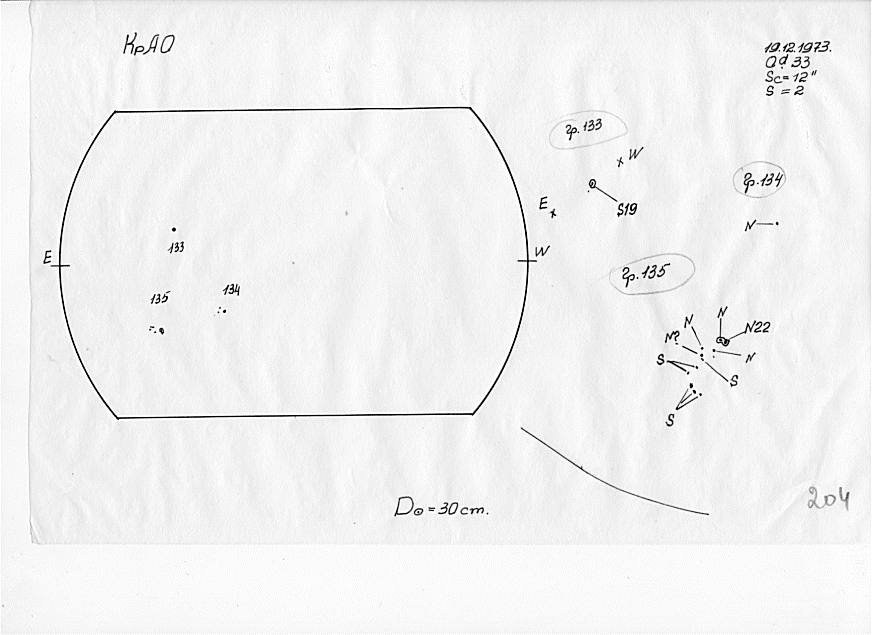 КрАО
19.12.1973.
Sc = 12"
S = 2
гр. 133
W
E
S19
гр. 134
N
гр. 135
E
W
133
134
135
N
N
N22
N?
N
S
S
S
D⊙ = 30 cm.
204